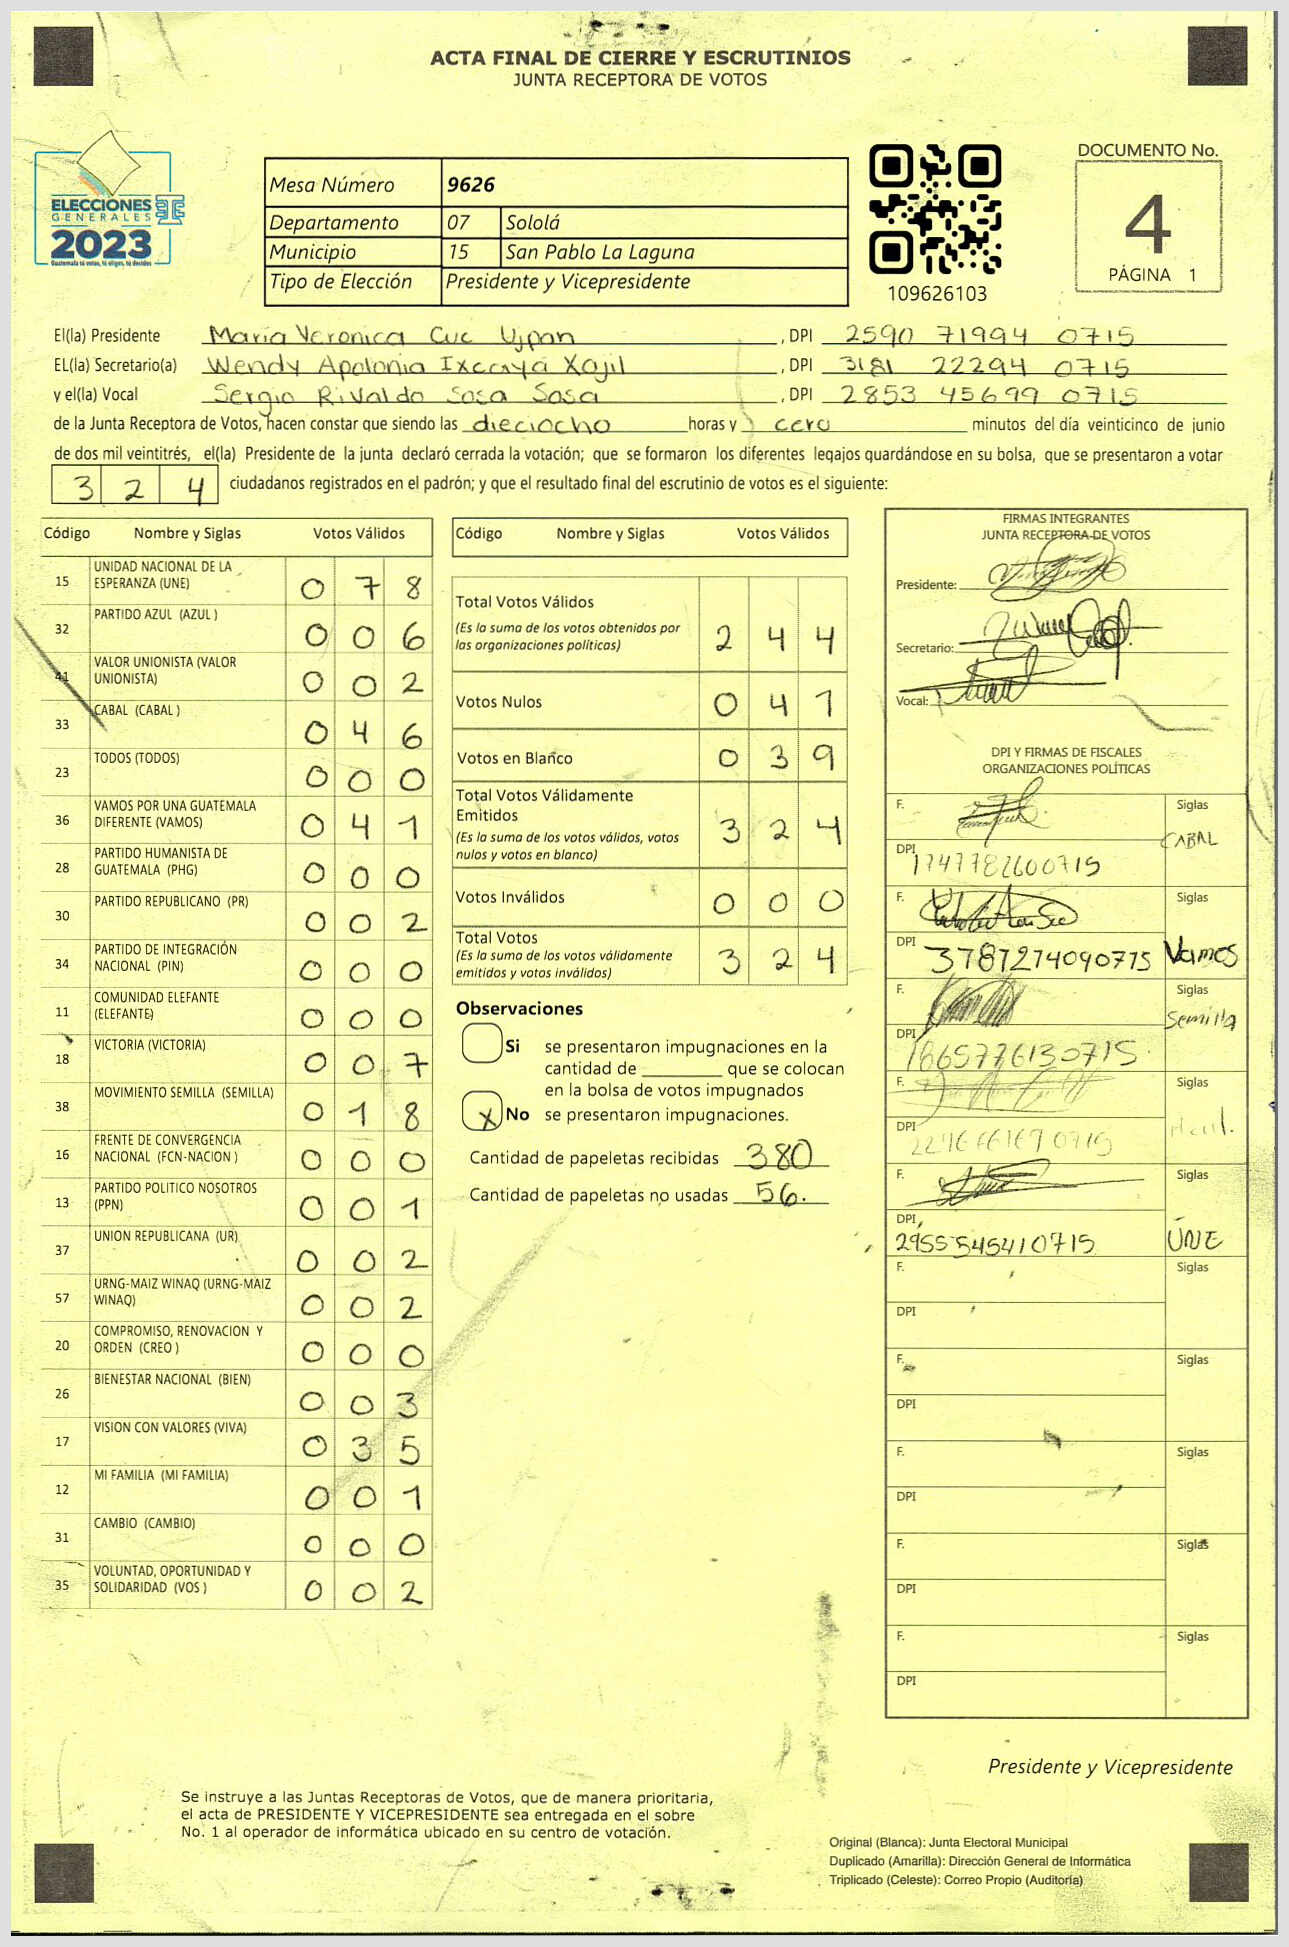 ACTA FINAL DE CIERRE Y ESCRUTINIOS
JUNTA RECEPTORA DE VOTOS
ELECCIONES
GENERALES
2023
Guatemala tú votas, tú eliges, tú decides
Mesa Número 9626
Departamento 07 Sololá
Municipio 15 San Pablo La Laguna
Tipo de Elección Presidente y Vicepresidente
109626103
DOCUMENTO No.
4
PÁGINA 1
El(la) Presidente María Veronica Cuc Ujpan , DPI 2590 71994 0715
EL(la) Secretario(a) Wendy Apolonia Ixcaya Xajil , DPI 3181 22294 0715
y el(la) Vocal Sergio Rivaldo Sosa Sosa , DPI 2853 45699 0715
de la Junta Receptora de Votos, hacen constar que siendo las dieciocho horas y cero minutos del día veinticinco de junio
de dos mil veintitrés, el(la) Presidente de la junta declaró cerrada la votación; que se formaron los diferentes legajos guardándose en su bolsa, que se presentaron a votar
3 2 4 ciudadanos registrados en el padrón; y que el resultado final del escrutinio de votos es el siguiente:
Código Nombre y Siglas Votos Válidos
15 UNIDAD NACIONAL DE LA ESPERANZA (UNE) 0 7 8
32 PARTIDO AZUL (AZUL ) 0 0 6
41 VALOR UNIONISTA (VALOR UNIONISTA) 0 0 2
33 CABAL (CABAL ) 0 4 6
23 TODOS (TODOS) 0 0 0
36 VAMOS POR UNA GUATEMALA DIFERENTE (VAMOS) 0 4 1
28 PARTIDO HUMANISTA DE GUATEMALA (PHG) 0 0 0
30 PARTIDO REPUBLICANO (PR) 0 0 2
34 PARTIDO DE INTEGRACIÓN NACIONAL (PIN) 0 0 0
11 COMUNIDAD ELEFANTE (ELEFANTE) 0 0 0
18 VICTORIA (VICTORIA) 0 0 7
38 MOVIMIENTO SEMILLA (SEMILLA) 0 1 8
16 FRENTE DE CONVERGENCIA NACIONAL (FCN-NACION ) 0 0 0
13 PARTIDO POLITICO NOSOTROS (PPN) 0 0 1
37 UNION REPUBLICANA (UR) 0 0 2
57 URNG-MAIZ WINAQ (URNG-MAIZ WINAQ) 0 0 2
20 COMPROMISO, RENOVACION Y ORDEN (CREO ) 0 0 0
26 BIENESTAR NACIONAL (BIEN) 0 0 3
17 VISION CON VALORES (VIVA) 0 3 5
12 MI FAMILIA (MI FAMILIA) 0 0 1
31 CAMBIO (CAMBIO) 0 0 0
35 VOLUNTAD, OPORTUNIDAD Y SOLIDARIDAD (VOS ) 0 0 2
Código Nombre y Siglas Votos Válidos
Total Votos Válidos 2 4 4
(Es la suma de los votos obtenidos por
las organizaciones políticas)
Votos Nulos 0 4 1
Votos en Blanco 0 3 9
Total Votos Válidamente
Emitidos 3 2 4
(Es la suma de los votos válidos, votos
nulos y votos en blanco)
Votos Inválidos 0 0 0
Total Votos 3 2 4
(Es la suma de los votos válidamente
emitidos y votos inválidos)
Observaciones
Si se presentaron impugnaciones en la
cantidad de ________ que se colocan
en la bolsa de votos impugnados
X No se presentaron impugnaciones.
Cantidad de papeletas recibidas 380
Cantidad de papeletas no usadas 56.
FIRMAS INTEGRANTES
JUNTA RECEPTORA DE VOTOS
Presidente:
Secretario:
Vocal:
DPI Y FIRMAS DE FISCALES
ORGANIZACIONES POLÍTICAS
F. Siglas
CABAL
DPI 1747782600715
F. Siglas
DPI 3787274090715 Vamos
F. Siglas
Semilla
DPI 1665776130715
F. Siglas
DPI
F. Siglas
DPI 2955545410715 UNE
F. Siglas
DPI
F. Siglas
DPI
F. Siglas
DPI
F. Siglas
DPI
F. Siglas
DPI
Presidente y Vicepresidente
Se instruye a las Juntas Receptoras de Votos, que de manera prioritaria,
el acta de PRESIDENTE Y VICEPRESIDENTE sea entregada en el sobre
No. 1 al operador de informática ubicado en su centro de votación.
Original (Blanca): Junta Electoral Municipal
Duplicado (Amarilla): Dirección General de Informática
Triplicado (Celeste): Correo Propio (Auditoría)